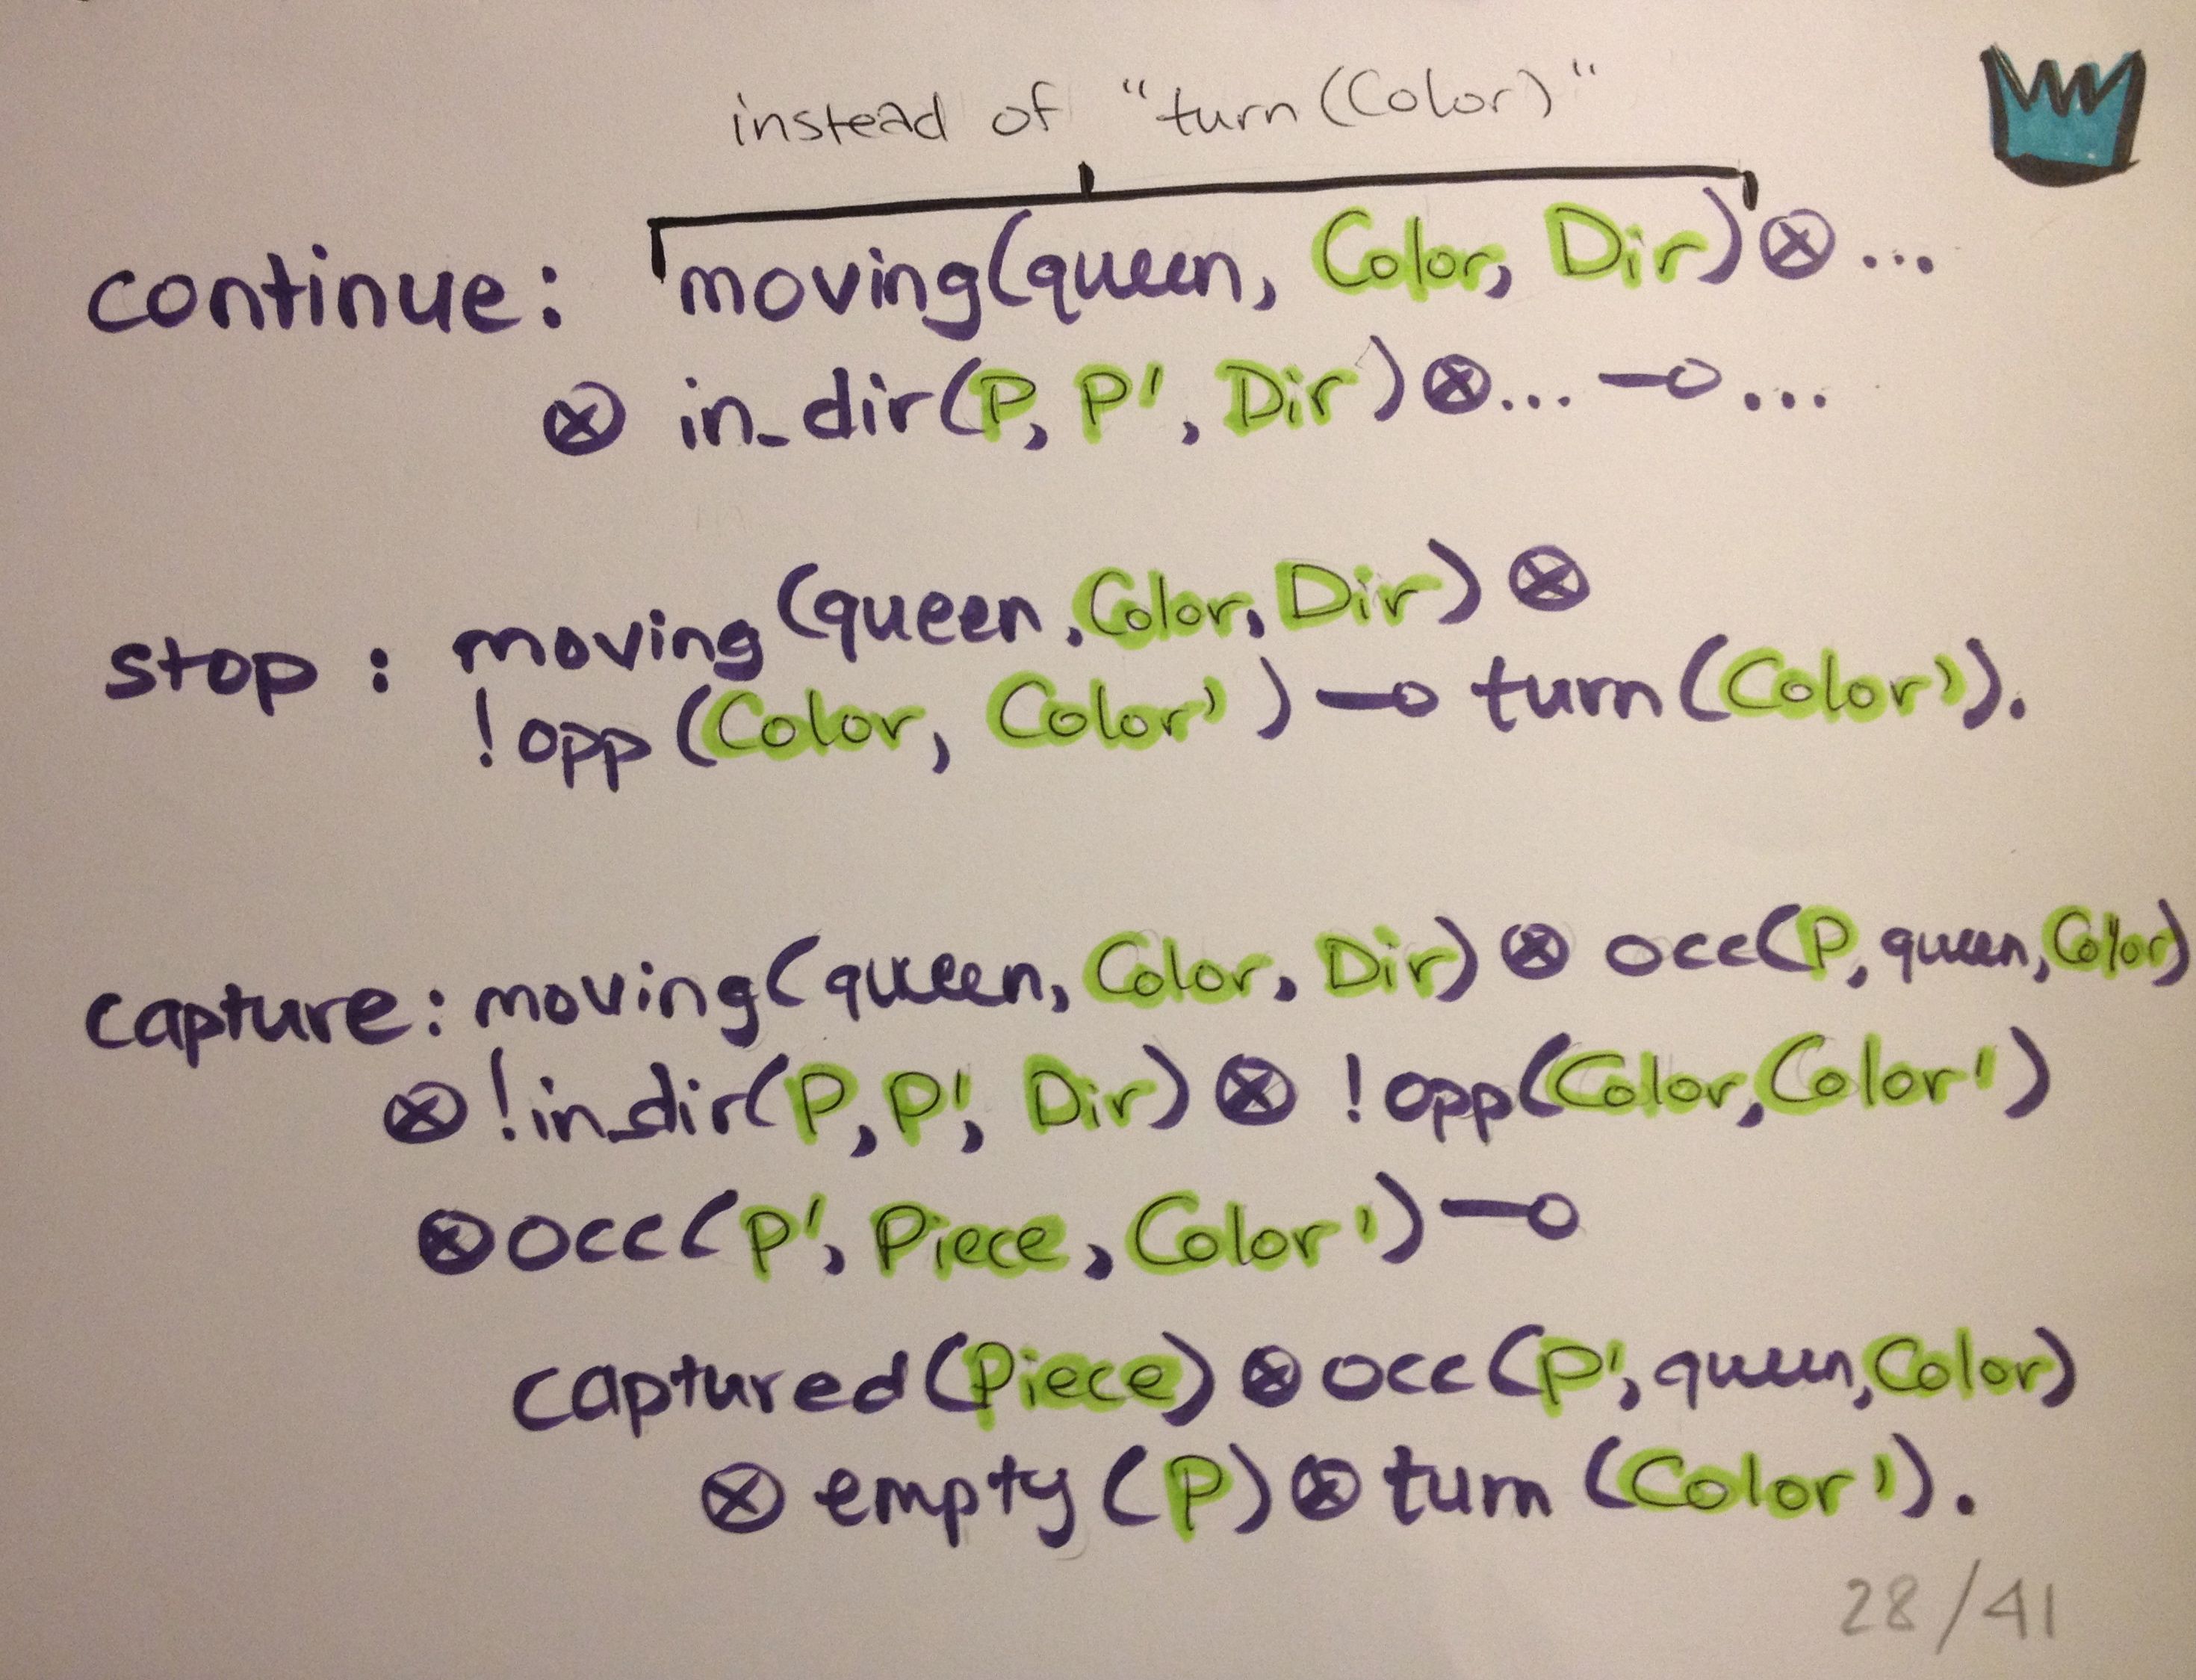 instead of "turn (Color)"
continue: moving(queen, Color, Dir) ⊗ ...
⊗ in_dir(P, P', Dir) ⊗ ... —o ...
stop: moving(queen, Color, Dir) ⊗
!opp(Color, Color') —o turn(Color').
capture: moving(queen, Color, Dir) ⊗ occ(P, queen, Color)
⊗ !in_dir(P, P', Dir) ⊗ !opp(Color, Color')
⊗ occ(P', Piece, Color') —o
captured(Piece) ⊗ occ(P', queen, Color)
⊗ empty(P) ⊗ turn(Color').
28/41